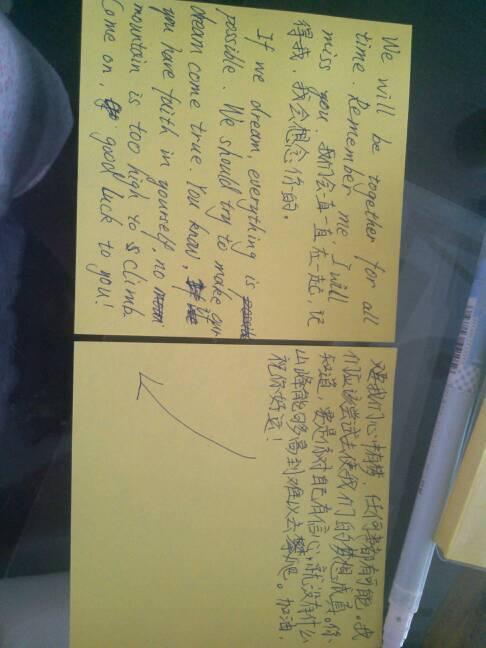 We will be together for all
time. Remember me, I will
miss you 我们会一直一直在一起，记
得我，我会想念你的。
If we dream, everything is
possible. We should try to make our
dream come true. You know, if
you have faith in yourself, no
mountain is too high to climb
Come on, good luck to you!
要我们心中有梦，任何事都有可能。我
们应该尝试去使我们的梦想成真。你
知道，要是你对自己有信心，就没有什么
山峰能够高到难以去攀爬。加油，
祝你好运！